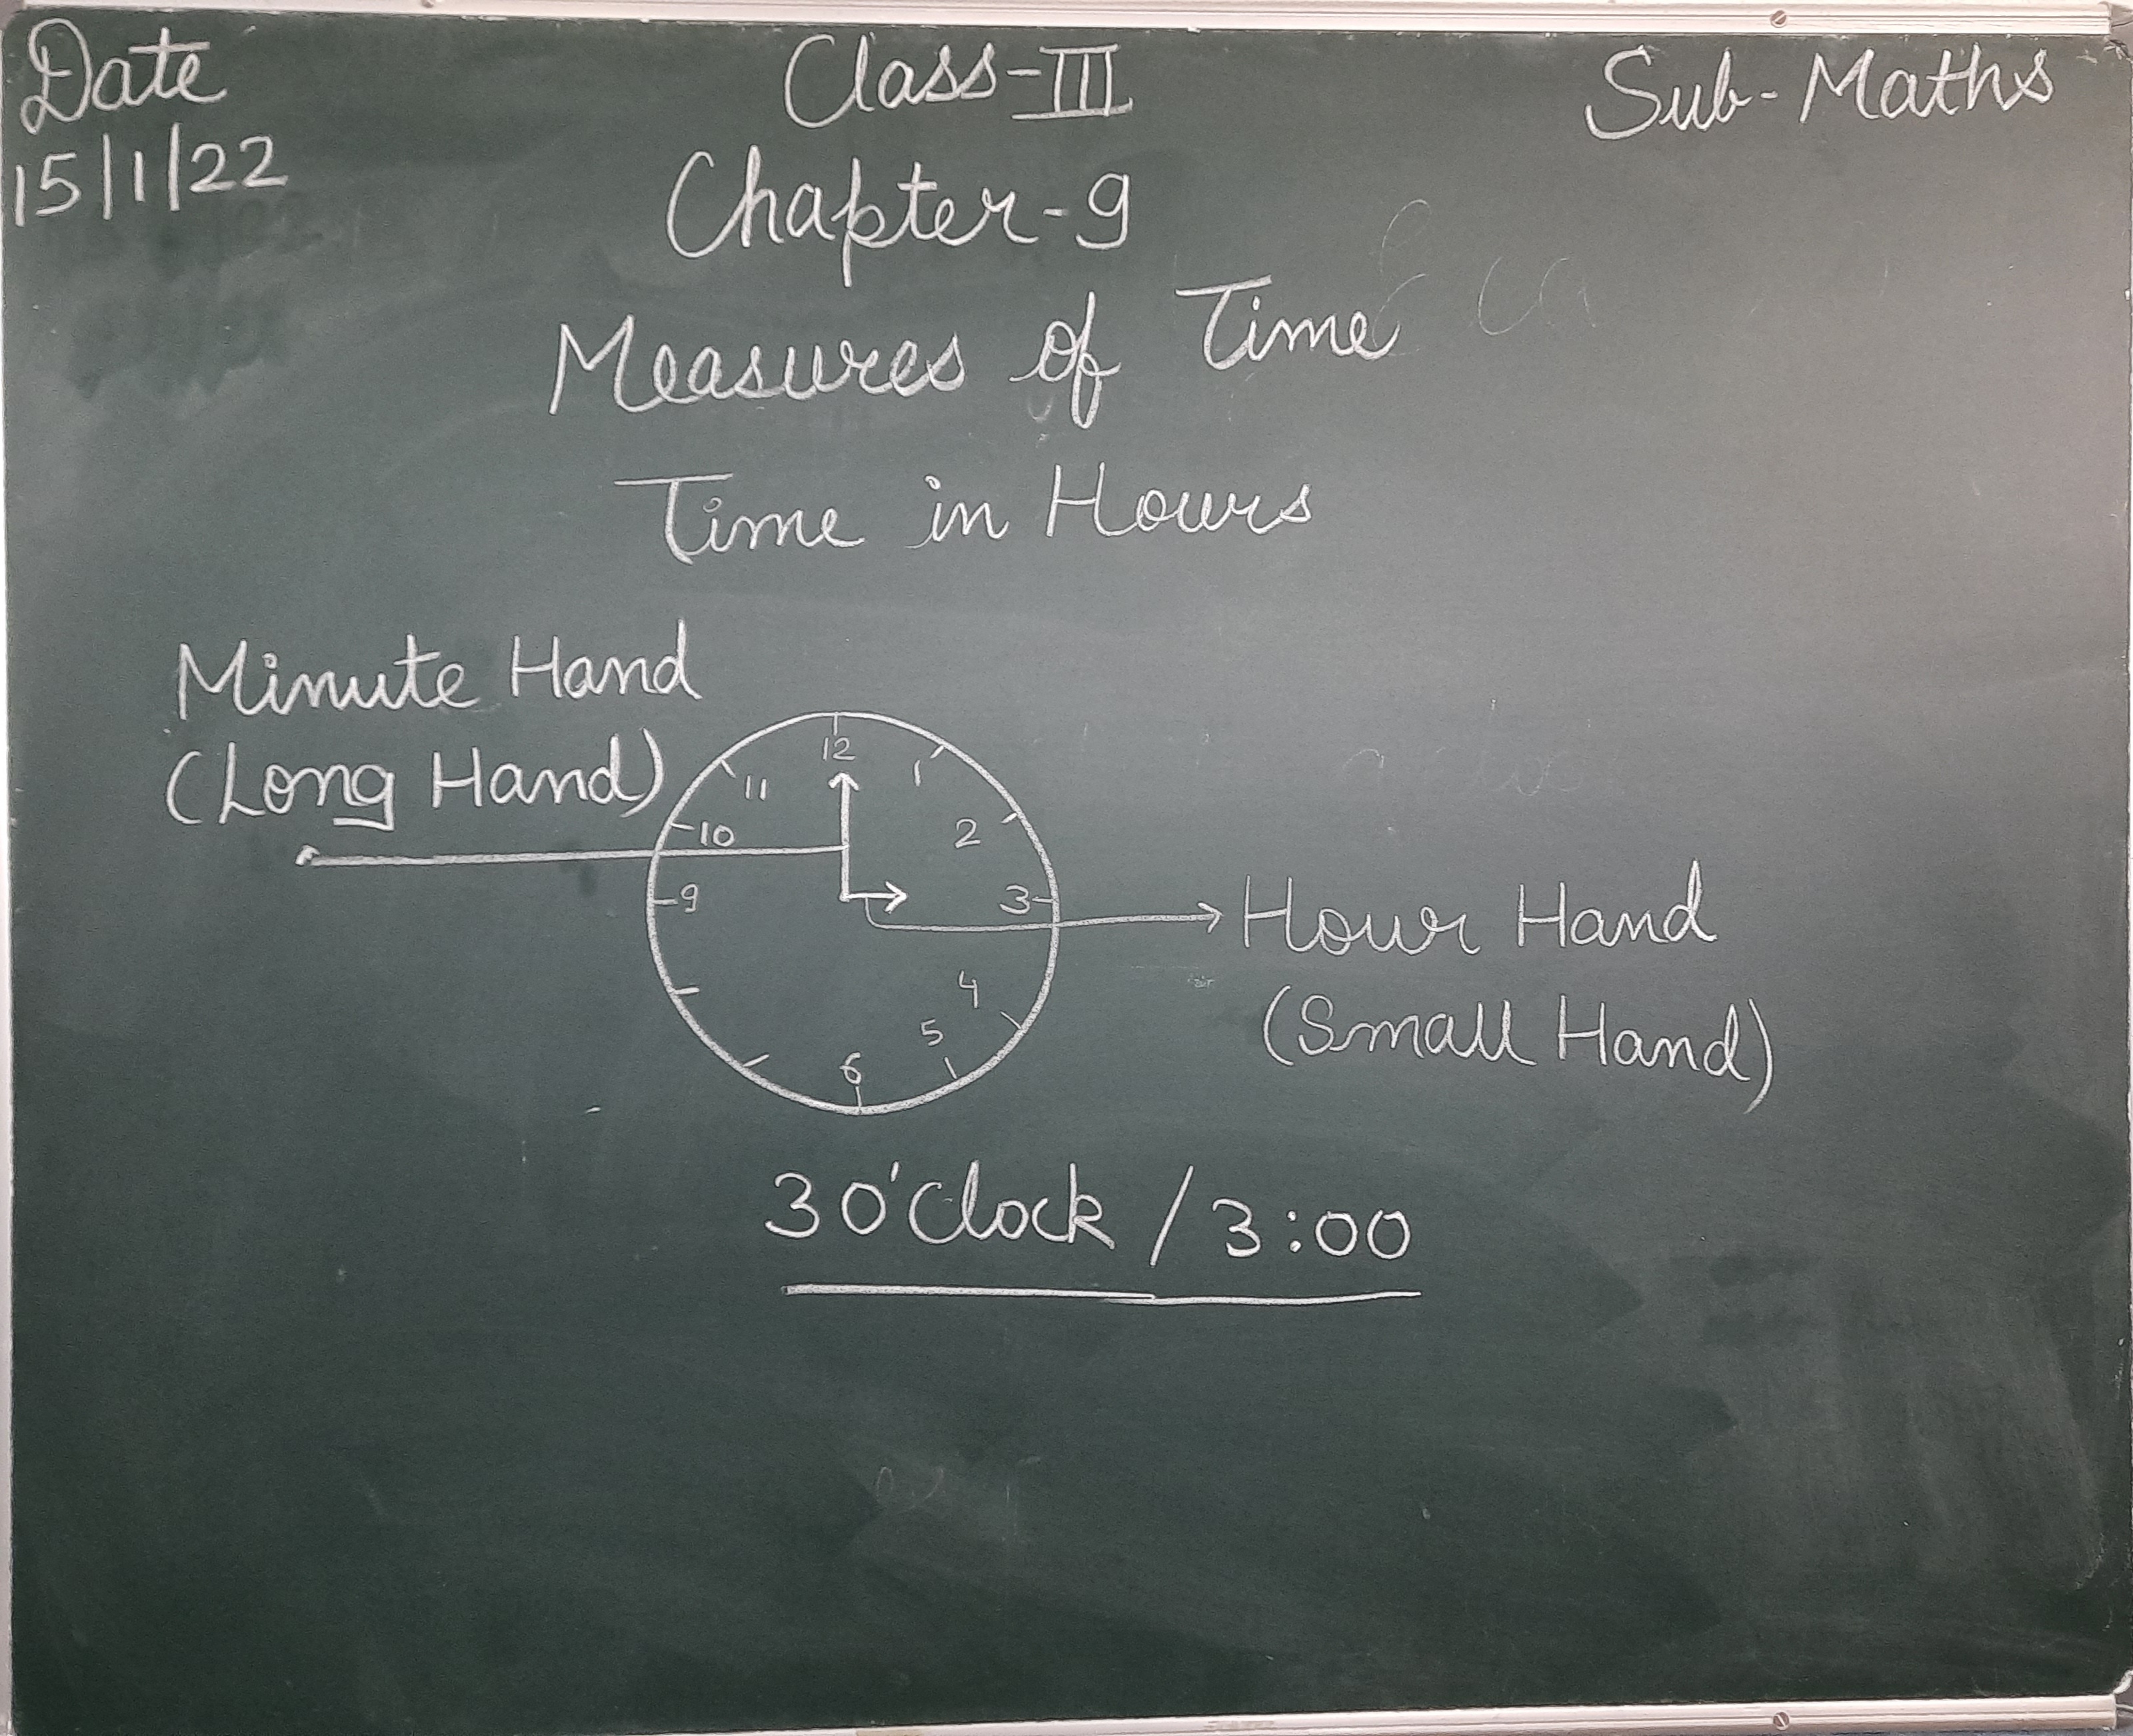 Date
15/1/22
Class-III
Sub-Maths
Chapter-9
Measures of Time
Time in Hours
Minute Hand
(Long Hand)
12
11
1
10
2
9
3
4
5
6
Hour Hand
(Small Hand)
3O'Clock / 3:00